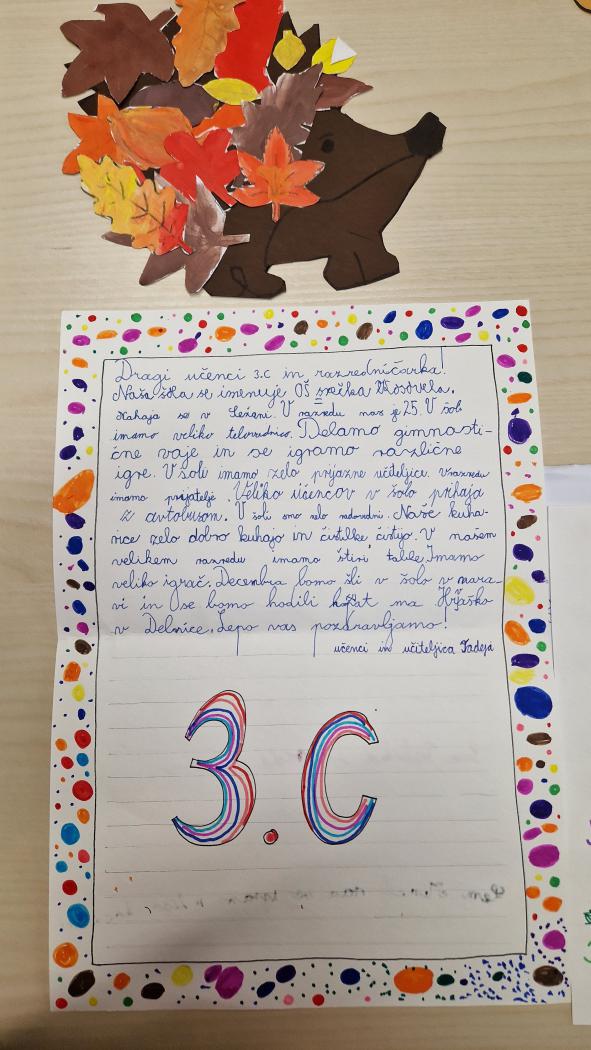 Dragi učenci 3.C in razredničarka!
Naša šola se imenuje OŠ Srečka Kosovela.
Nahaja se v Sežani. V razredu nas je 25. V šoli
imamo veliko telovadnico. Delamo gimnasti-
čne vaje in se igramo različne
igre. V šoli imamo zelo prijazne učiteljice. V razredu
imamo prijatelje. Veliko učencov v šolo prihaja
z avtobusom. V šoli smo zelo radovedni. Naše kuha-
rice zelo dobro kuhajo in čistilke čistijo. V našem
velikem razredu imamo štiri table. Imamo
veliko igrač. Decembra bomo šli v šolo v nara-
vi in se bomo hodili kopat na Hrvaško
v Delnice. Lepo vas pozdravljamo!
učenci in učiteljica Tadeja
3.C